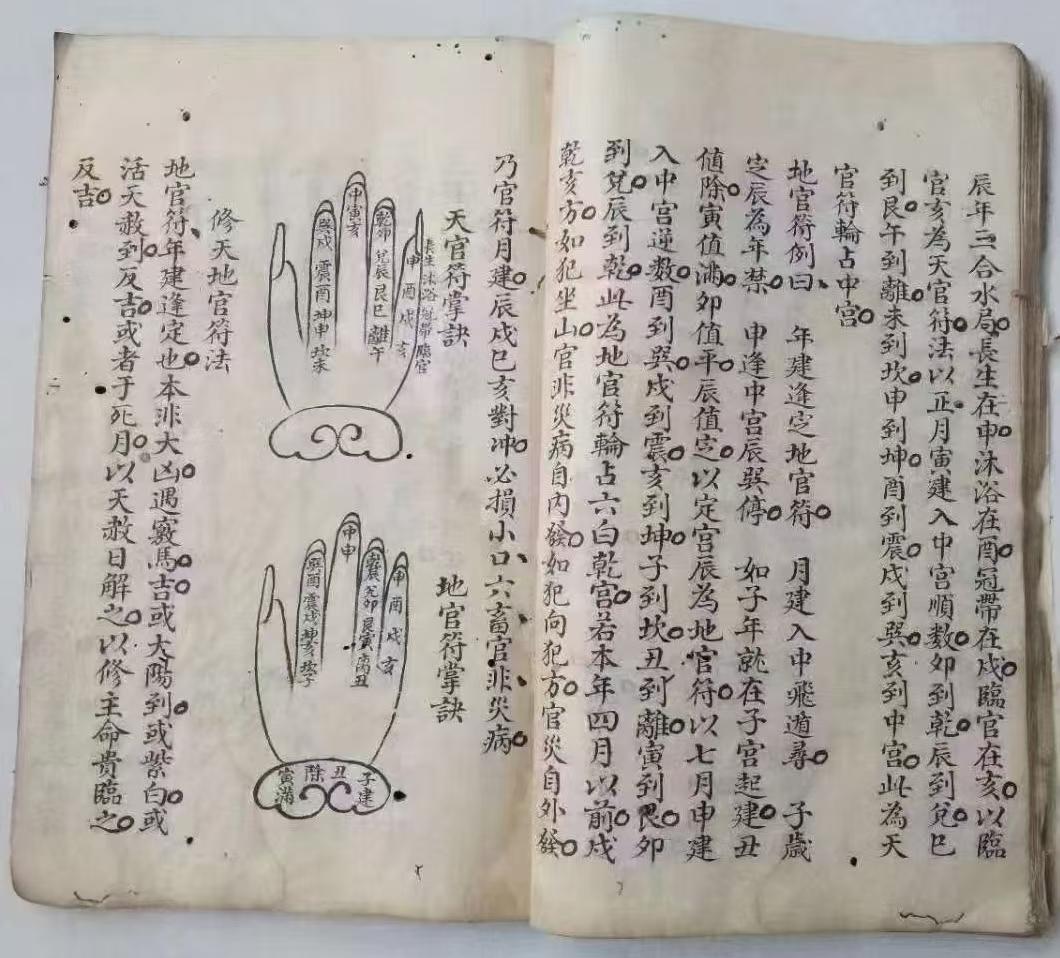 辰年三合水局長生在申沐浴在酉冠帶在戌臨官在亥以臨
官亥為天官符法以正月寅建入中宮順數卯到乾辰到兌巳
到艮午到離未到坎申到坤酉到震戌到巽亥到中宮此為天
官符輪占中宮
地官符例曰 年建逢定地官符 月建入中飛遁尋 子歲
定辰為年禁 申逢中宮辰巽停 如子年就在子宮起建丑
值除寅值滿卯值平辰值定以定宮辰為地官符以七月申建
入中宮逆數酉到巽戌到震亥到坤子到坎丑到離寅到艮卯
到兌辰到乾此為地官符輪占六白乾宮若本年四月以前戌
乾亥方如犯坐山官非災病自內發如犯向犯方官災自外發
乃官符月建辰戌巳亥對冲必損小口六畜官非災病
天官符掌訣
長生沐浴冠帶臨官
申酉戌亥
乾卯兌辰艮巳離午
中寅亥
巽戌震酉坤申坎未
地官符掌訣
申酉戌亥
乾辰兌卯艮寅离丑
中申
巽酉震戌坤亥坎子
子建丑除寅滿
修天地官符法
地官符年建逢定也本非大凶遇竅馬吉或太陽到或紫白或
活天赦到反吉或者于死月以天赦日解之以修主命貴臨之
反吉